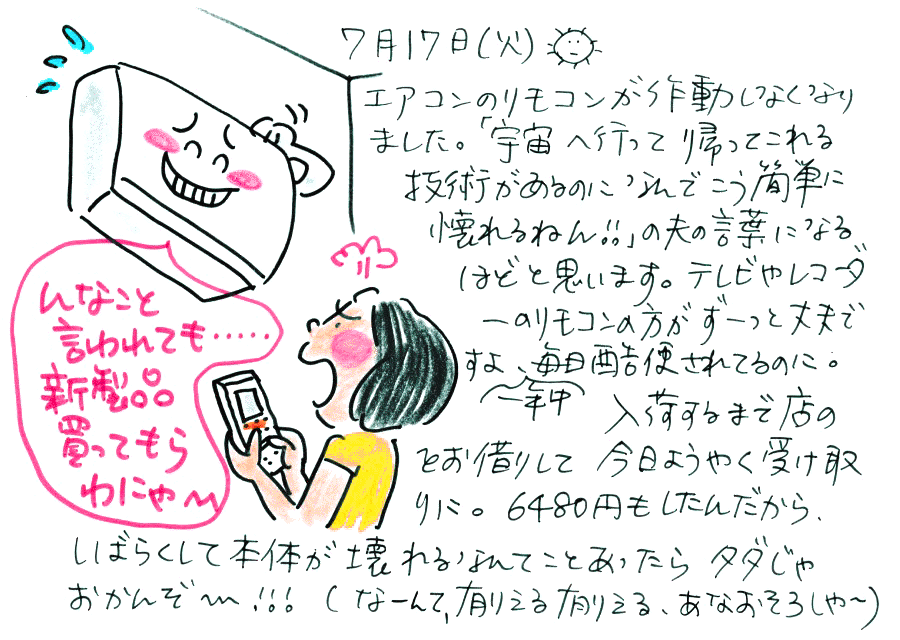 7月17日(火)
エアコンのリモコンが作動しなくなり
ました。「宇宙へ行って帰ってこれる
技術があるのになんでこう簡単に
懐れるねん!!」の夫の言葉になる
ほどと思います。テレビやレコーダ
ーのリモコンの方がずーっと丈夫で
すよ、毎日酷使されてるのに。
一年中
入荷するまで店の
をお借りして 今日ようやく受け取
りに。6480円もしたんだから、
しばらくして本体が壊れるなんてことあったら タダじゃ
おかんぞ〜!!! (なーんて、有りえる有りえる、あなおそろしや〜)
んなこと
言われても……
新製品
買ってもら
わにゃ〜